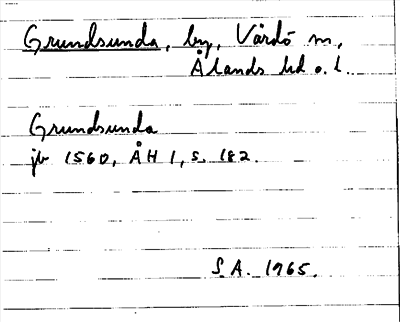 Grundsunda, by, Vårdö sn,
Ålands hd o. l.
Grundsunda
jb 1560, ÅH 1, s. 182.
S.A. 1965.